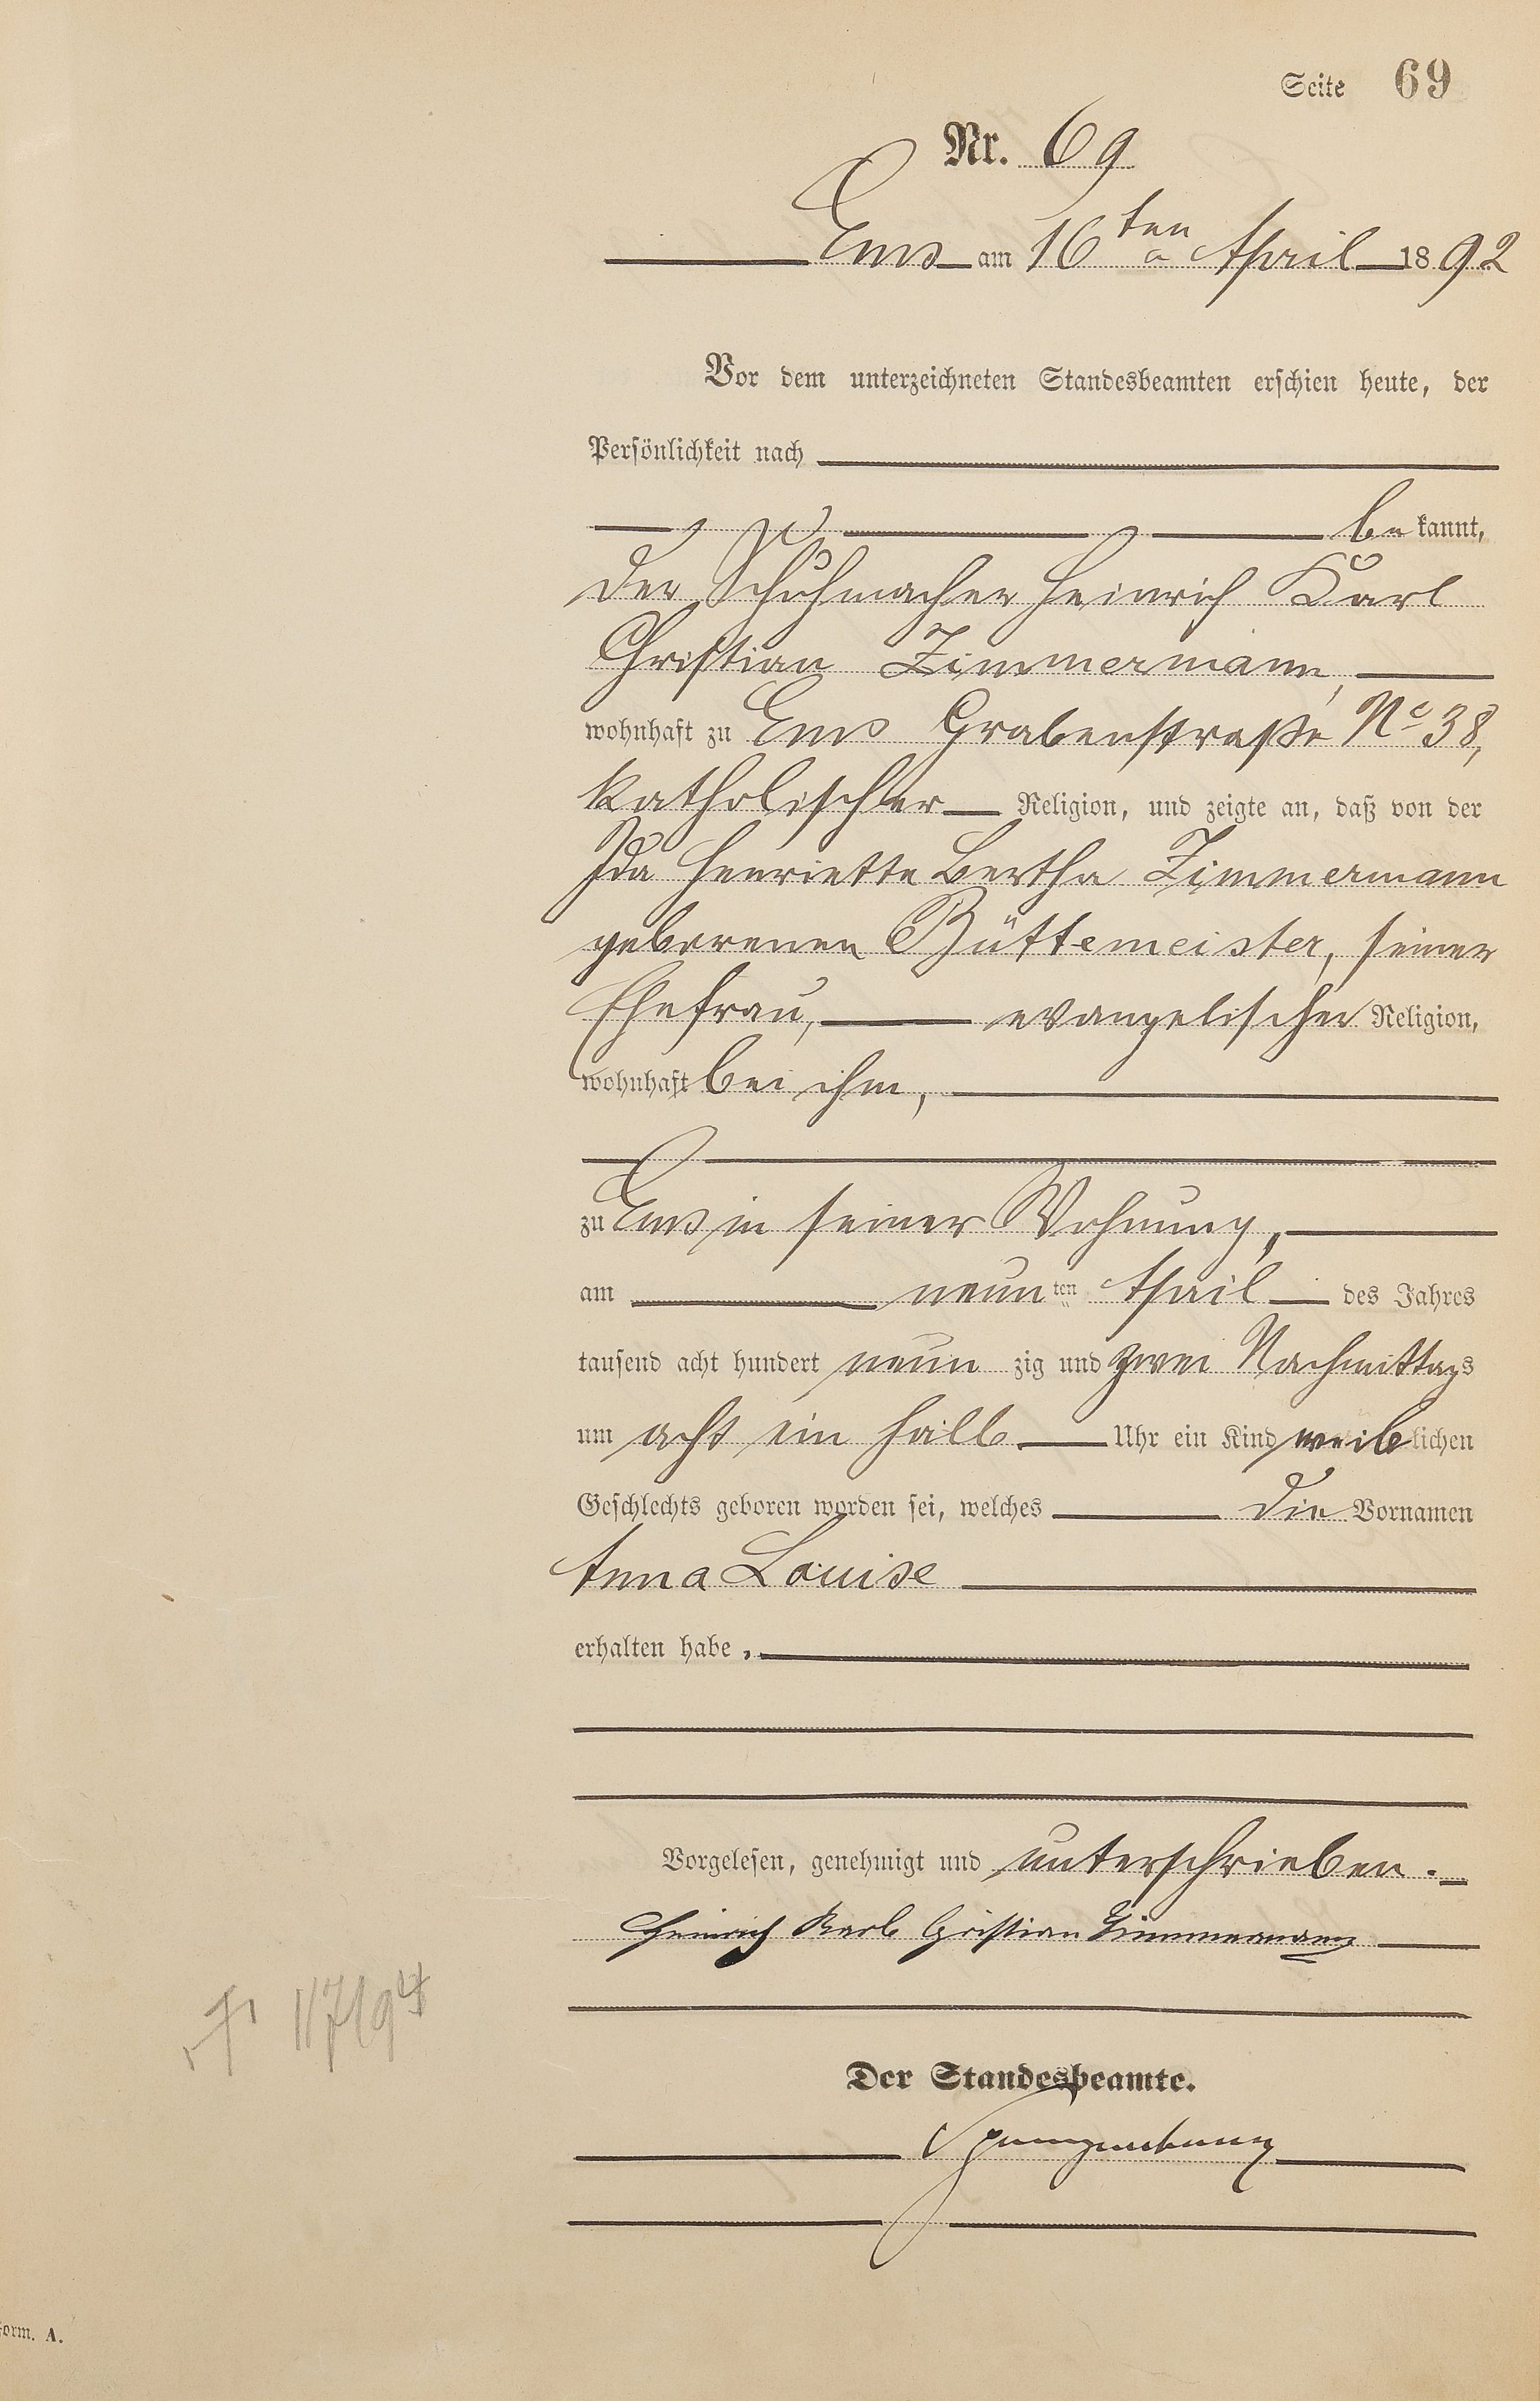 Seite 69
Nr. 69
Ems am 16ten April 1892
Vor dem unterzeichneten Standesbeamten erschien heute, der
Persönlichkeit nach
bekannt,
der Schuhmacher Heinrich Karl
Christian Zimmermann,
wohnhaft zu Ems Grabenstraße No 38,
katholischer Religion, und zeigte an, daß von der
Ida Henriette Bertha Zimmermann
geborenen Büttemeister, seiner
Ehefrau, evangelischer Religion,
wohnhaft bei ihm,
zu Ems in seiner Wohnung,
am neunten April des Jahres
tausend acht hundert neunzig und zwei Nachmittags
um acht ein halb Uhr ein Kind weiblichen
Geschlechts geboren worden sei, welches die Vornamen
Anna Louise
erhalten habe.
Vorgelesen, genehmigt und unterschrieben.
Heinrich Karl Christian Zimmermann
Der Standesbeamte.
Form. A.